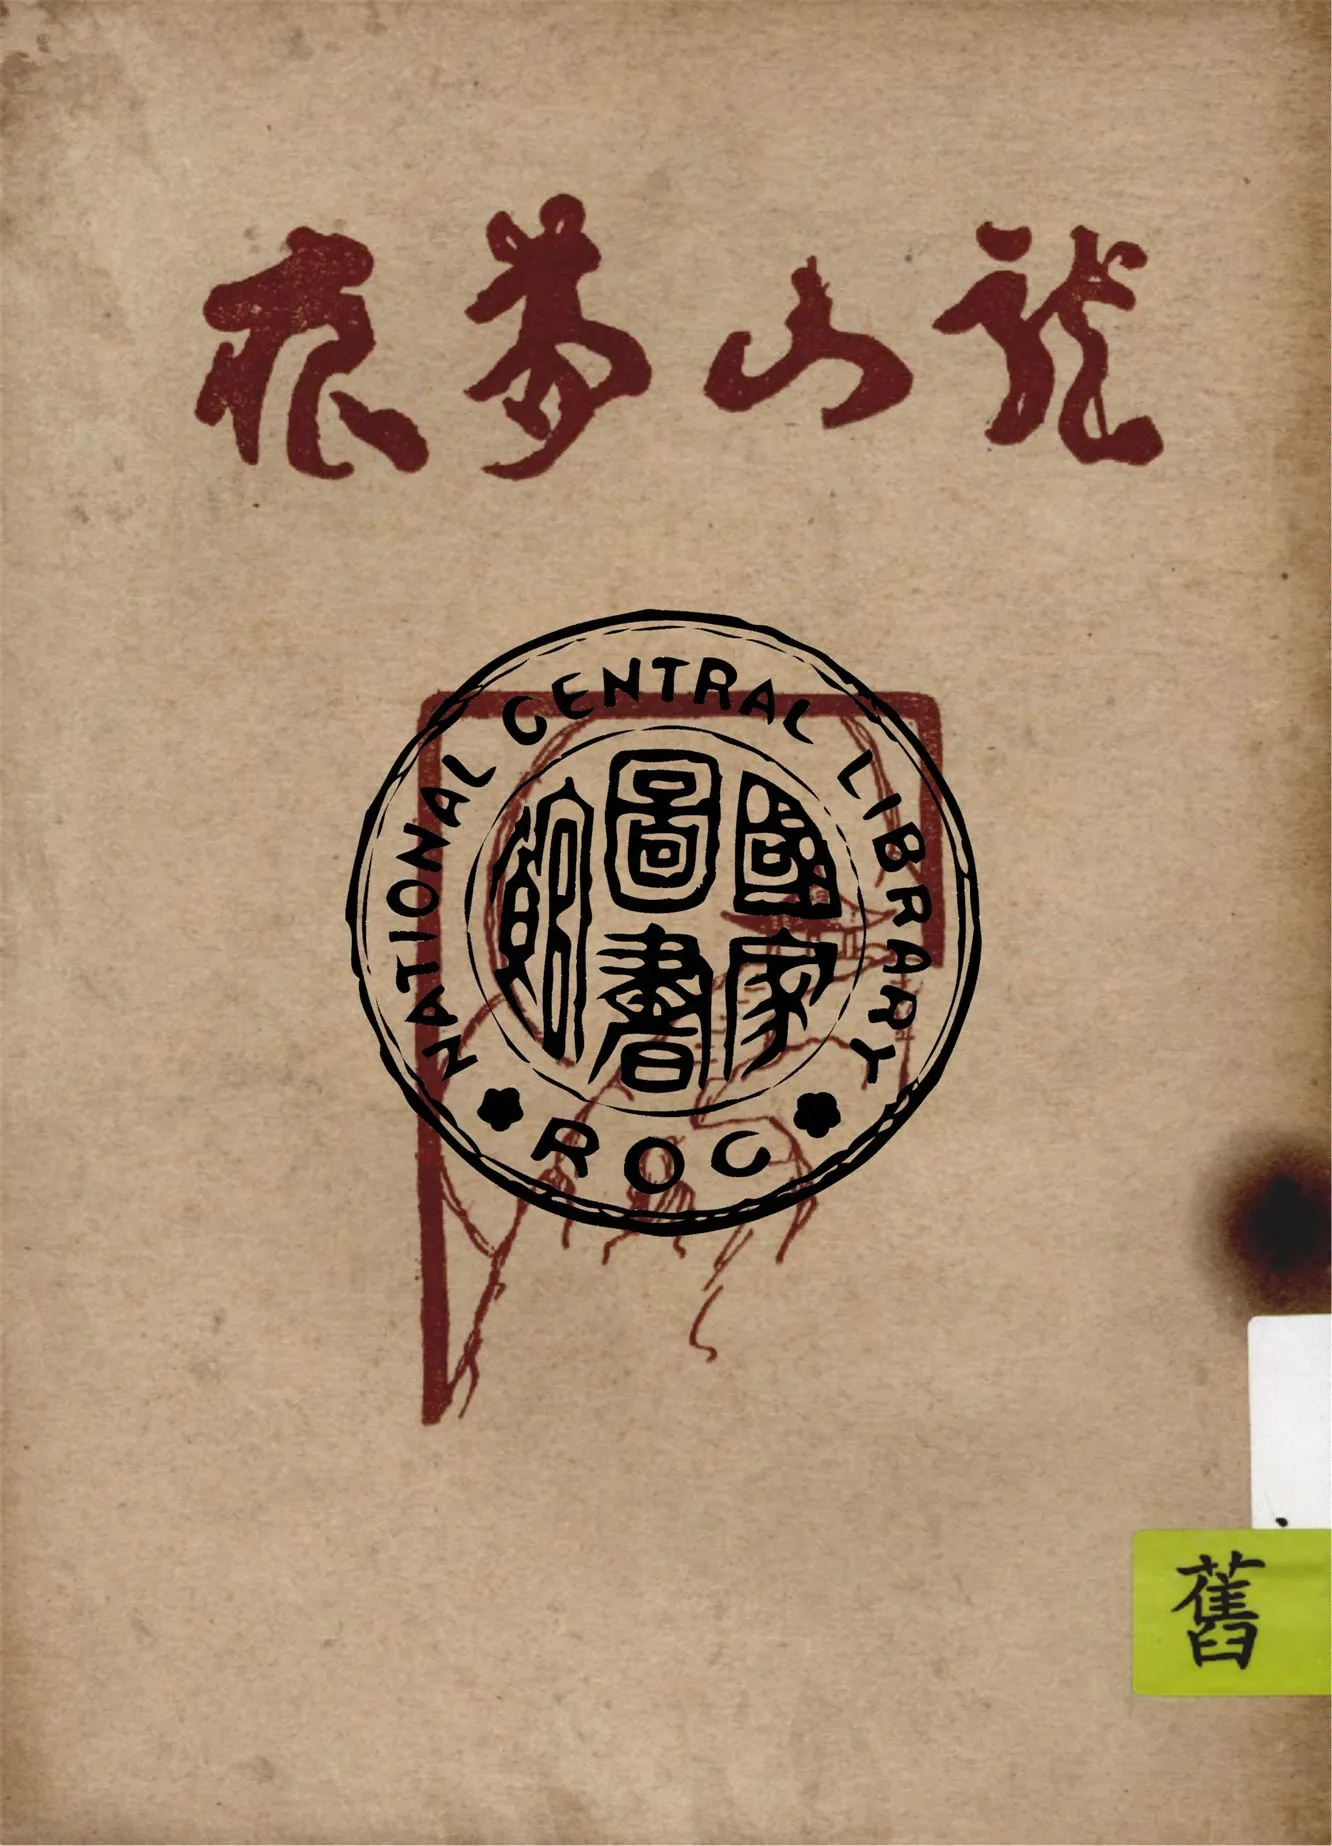 龍山夢痕
NATIONAL CENTRAL LIBRARY
國家圖書館
ROC
舊